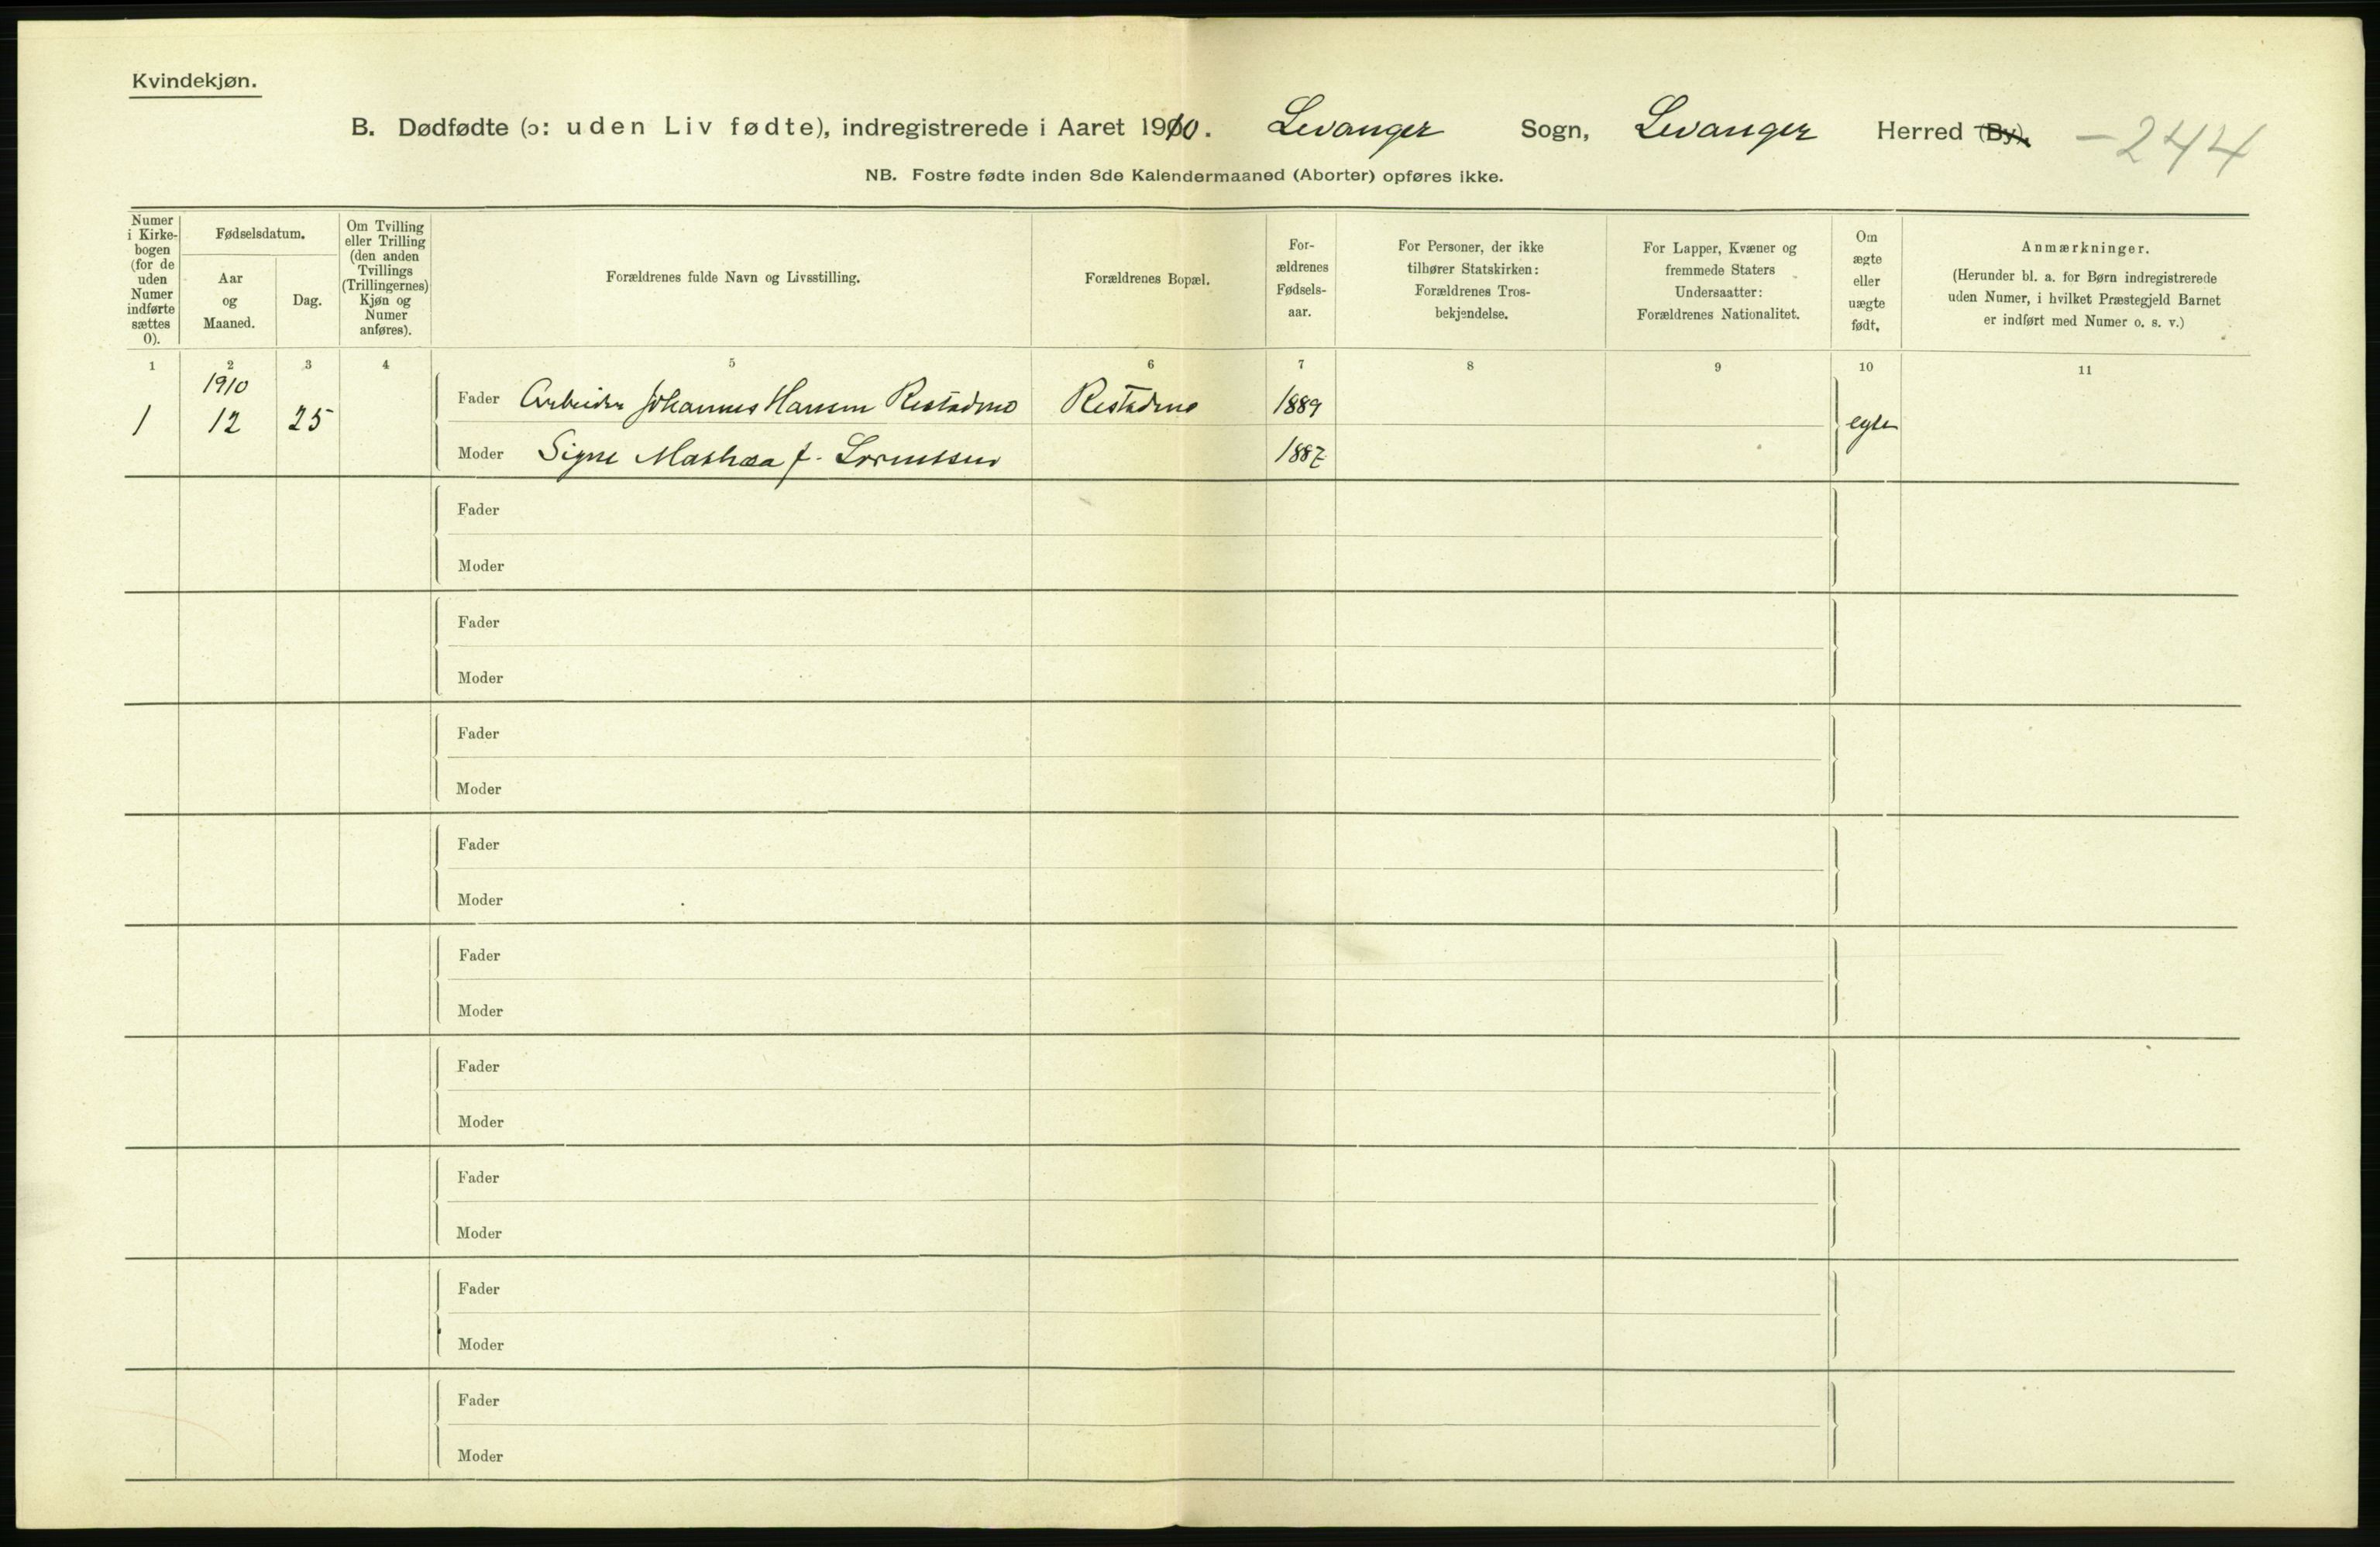 Kvindekjøn.
B. Dødfødte (ɔ: uden Liv fødte), indregistrerede i Aaret 1910. Levanger Sogn, Levanger Herred (By). -244
NB. Fostre fødte inden 8de Kalendermaaned (Aborter) opføres ikke.
Numer i Kirke-bogen (for de uden Numer indførte sættes 0).
Fødselsdatum.
Aar og Maaned.
Dag.
Om Tvilling eller Trilling (den anden Tvillings (Trillingernes) Kjøn og Numer anføres).
Forældrenes fulde Navn og Livsstilling.
Forældrenes Bopæl.
For-ældrenes Fødsels-aar.
For Personer, der ikke tilhører Statskirken: Forældrenes Tros-bekjendelse.
For Lapper, Kvæner og fremmede Staters Undersaatter: Forældrenes Nationalitet.
Om ægte eller uægte født.
Anmærkninger.
(Herunder bl. a. for Børn indregistrerede uden Numer, i hvilket Præstegjeld Barnet er indført med Numer o. s. v.)
1 2 3 4 5 6 7 8 9 10 11
1910
1 12 25 Fader Arbeider Johannes Hansen Restadmo Restadmo 1889 egte
Moder Signe Mathea f. Lorentsen 1887
Fader
Moder
Fader
Moder
Fader
Moder
Fader
Moder
Fader
Moder
Fader
Moder
Fader
Moder
Fader
Moder
Fader
Moder